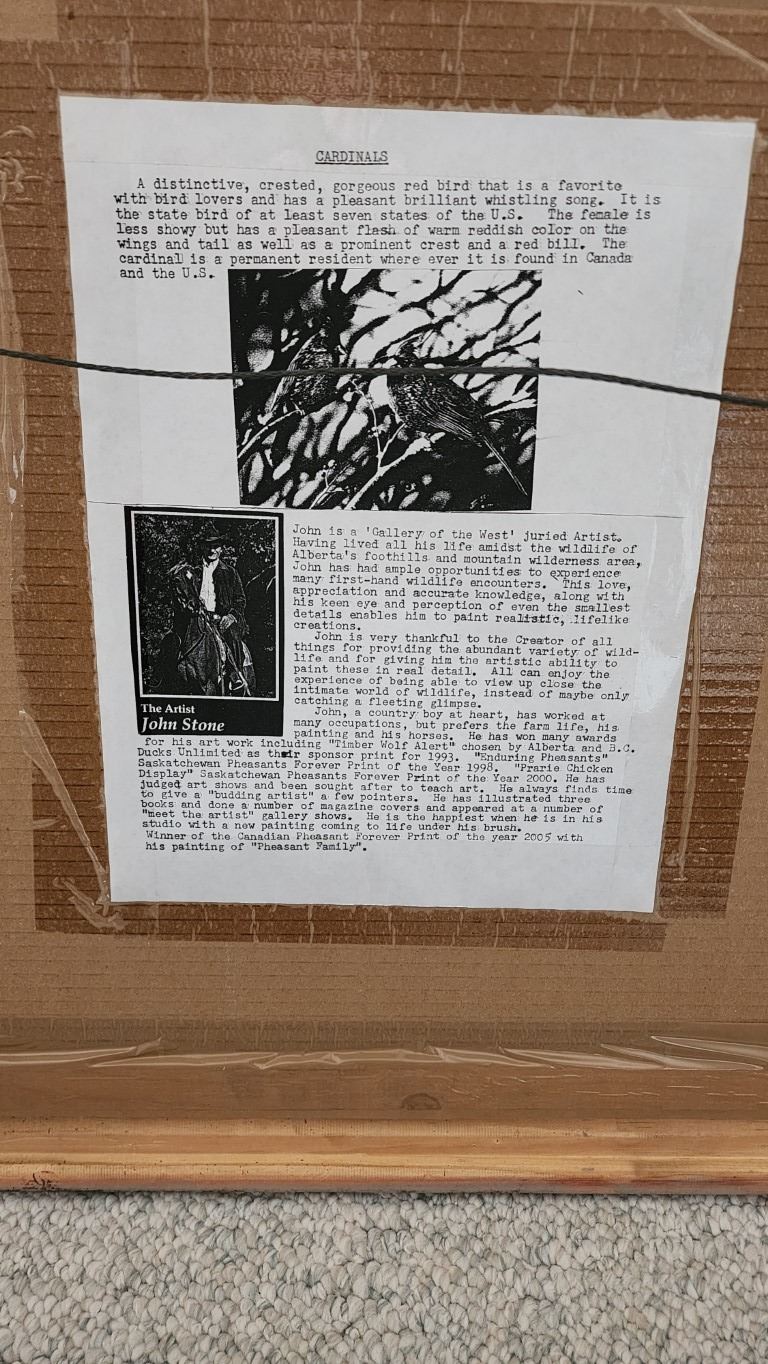 CARDINALS
A distinctive, crested, gorgeous red bird that is a favorite
with bird lovers and has a pleasant brilliant whistling song. It is
the state bird of at least seven states of the U.S. The female is
less showy but has a pleasant flash of warm reddish color on the
wings and tail as well as a prominent crest and a red bill. The
cardinal is a permanent resident where ever it is found in Canada
and the U.S.
John is a 'Gallery of the West' juried Artist.
Having lived all his life amidst the wildlife of
Alberta's foothills and mountain wilderness area,
John has had ample opportunities to experience
many first-hand wildlife encounters. This love,
appreciation and accurate knowledge, along with
his keen eye and perception of even the smallest
details enables him to paint realistic, lifelike
creations.
John is very thankful to the Creator of all
things for providing the abundant variety of wild-
life and for giving him the artistic ability to
paint these in real detail. All can enjoy the
experience of being able to view up close the
intimate world of wildlife, instead of maybe only
catching a fleeting glimpse.
John, a country boy at heart, has worked at
many occupations, but prefers the farm life, his
painting and his horses. He has won many awards
The Artist
John Stone
for his art work including "Timber Wolf Alert" chosen by Alberta and B.C.
Ducks Unlimited as their sponsor print for 1993. "Enduring Pheasants"
Saskatchewan Pheasants Forever Print of the Year 1998. "Prarie Chicken
Display" Saskatchewan Pheasants Forever Print of the Year 2000. He has
judged art shows and been sought after to teach art. He always finds time
to give a "budding artist" a few pointers. He has illustrated three
books and done a number of magazine covers and appeared at a number of
"meet the artist" gallery shows. He is the happiest when he is in his
studio with a new painting coming to life under his brush.
Winner of the Canadian Pheasant Forever Print of the year 2005 with
his painting of "Pheasant Family".